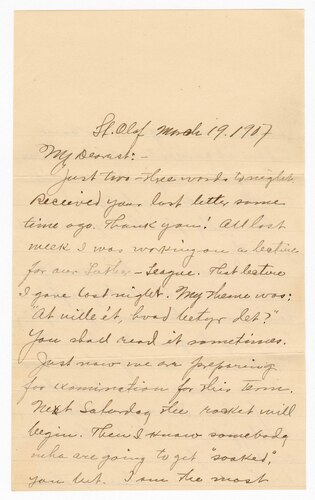 St. Olaf March 19, 1907
My Dearest:-
Just two-three words to-night.
Received your last letter some
time ago. Thank you! All last
week I was working on a lecture
for our Luther-League. That lecture
I gave last night. My theme was:
"At ville ét, hvad betyr det?"
You shall read it sometimes.
Just now we are preparing
for examination for this term.
Next Saturday the racket will
begin. Then I know somebody
who are going to get "soaked",
you bet. I am the most